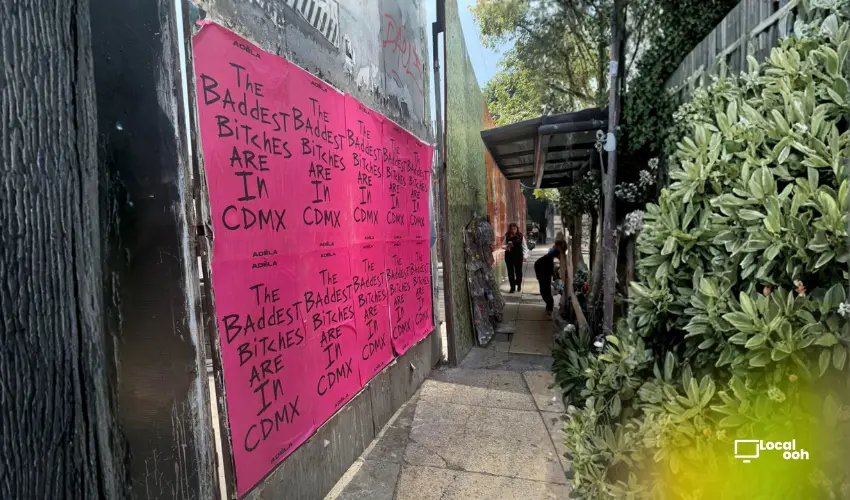 DAUL
ADÉLA
The
Baddest
Bitches
ARE
In
CDMX
ADÉLA
ADÉLA
The
Baddest
Bitches
ARE
In
CDMX
ADÉLA
The
Baddest
Bitches
ARE
In
CDMX
The
Baddest
Bitches
ARE
In
CDMX
The
Baddest
Bitches
ARE
In
CDMX
ADÉLA
The
Baddest
Bitches
ARE
In
CDMX
ADÉLA
The
Baddest
Bitches
ARE
In
CDMX
The
Baddest
Bitches
ARE
In
CDMX
The
Baddest
Bitches
ARE
In
CDMX
The
Baddest
Bitches
ARE
In
CDMX
Local
ooh